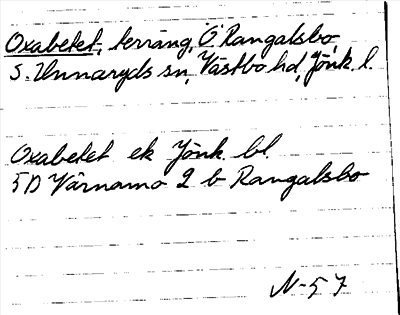 Oxabetet, terräng, Ö Rangalsbo,
S. Unnaryds sn, Västbo hd, Jönk. l.
Oxabetet ek Jönk. bl.
5D Värnamo 2 b Rangalsbo
N-57